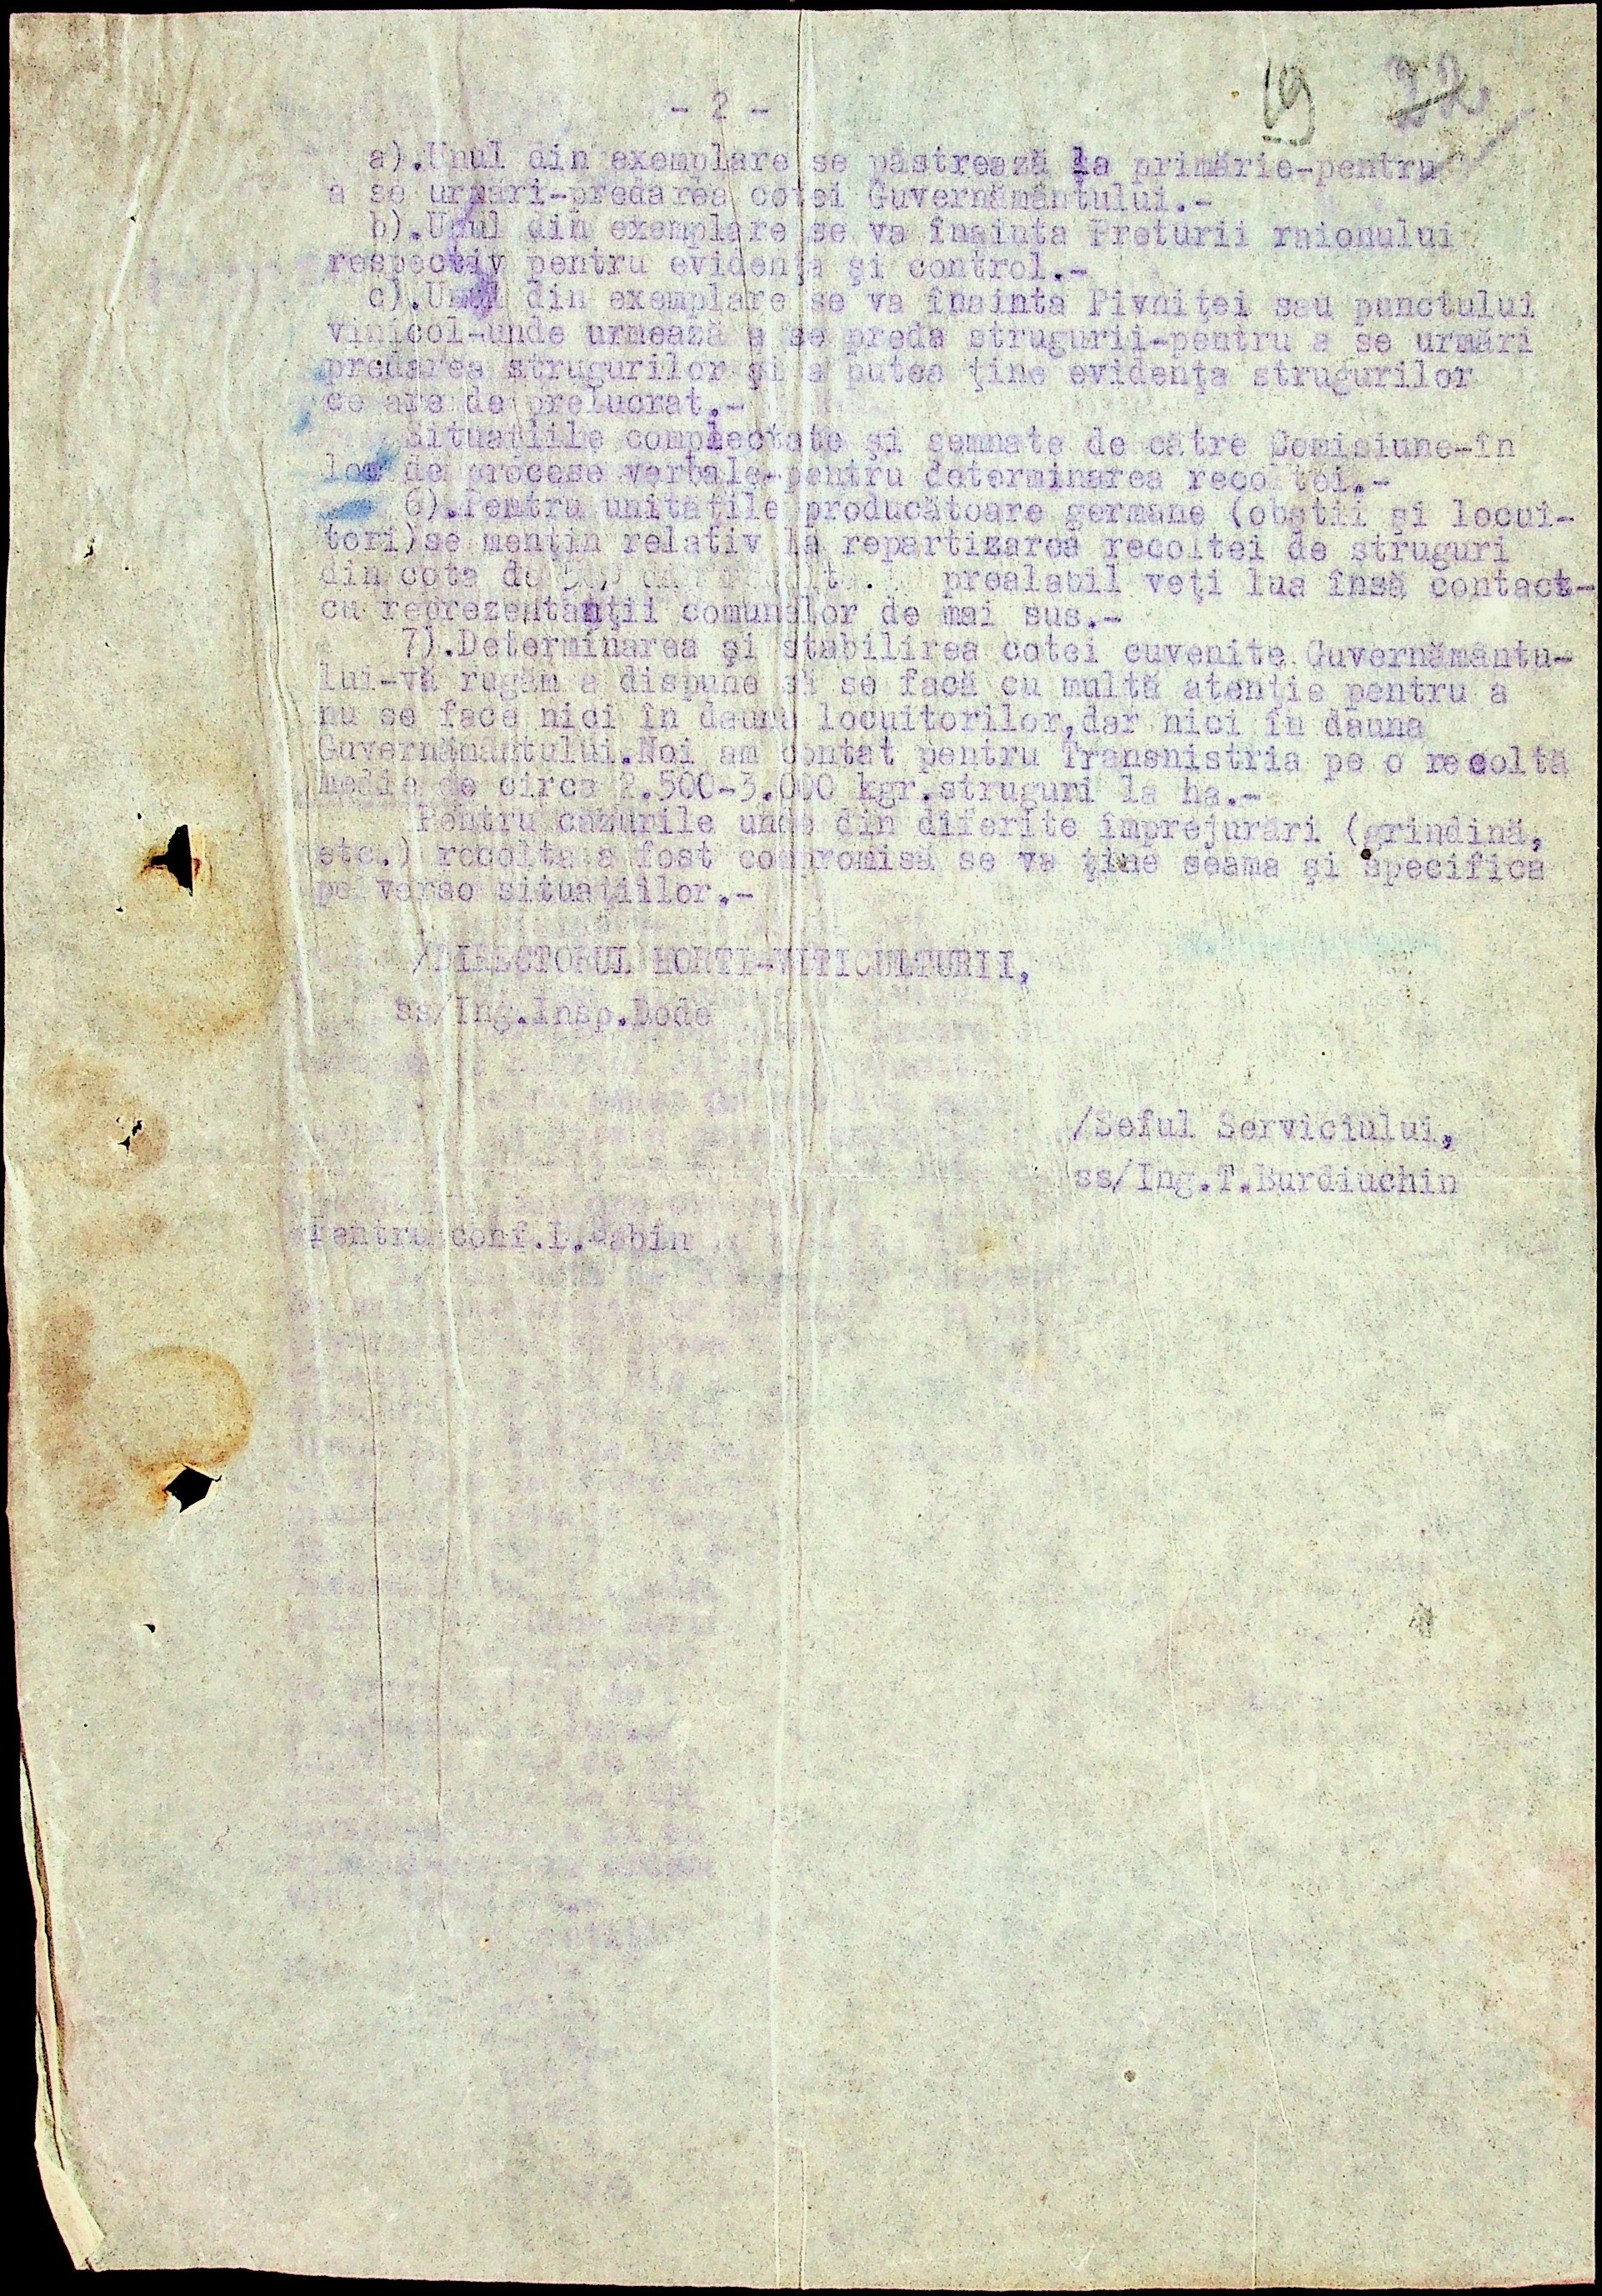 19 22
- 2 -
a).Unul din exemplare se păstrează la primărie-pentru
a se urmări-predarea cotei Guvernământului.-
b).Unul din exemplare se va înainta Preturii raionului
respectiv pentru evidenţa şi control.-
c).Unul din exemplare se va înainta Pivniţei sau punctului
vinicol-unde urmează a se preda strugurii-pentru a se urmări
predarea strugurilor şi a putea ţine evidenţa strugurilor
ce are de prelucrat.-
Situaţiile complectate şi semnate de către Comisiune-în
loc de procese verbale-pentru determinarea recoltei.-
6).Pentru unităţile producătoare germane (obştii şi locui-
tori)se menţin relativ la repartizarea recoltei de struguri
din cota de prealabil veţi lua însă contact-
cu reprezentanţii comunelor de mai sus.-
7).Determinarea şi stabilirea cotei cuvenite Guvernământu-
lui-vă rugăm a dispune să se facă cu multă atenţie pentru a
nu se face nici în dauna locuitorilor,dar nici în dauna
Guvernământului.Noi am contat pentru Transnistria pe o recoltă
medie de circa 2.500-3.000 kgr.struguri la ha.-
Pentru cazurile unde din diferite împrejurări (grindină,
etc.) recolta a fost compromisă se va ţine seama şi specifica
pe verso situaţiilor.-
/DIRECTORUL HORTI-VITICULTURII,
ss/Ing.Insp.Dode
/Seful Serviciului,
ss/Ing.T.Burdiuchin
Pentru conf.L.Babin